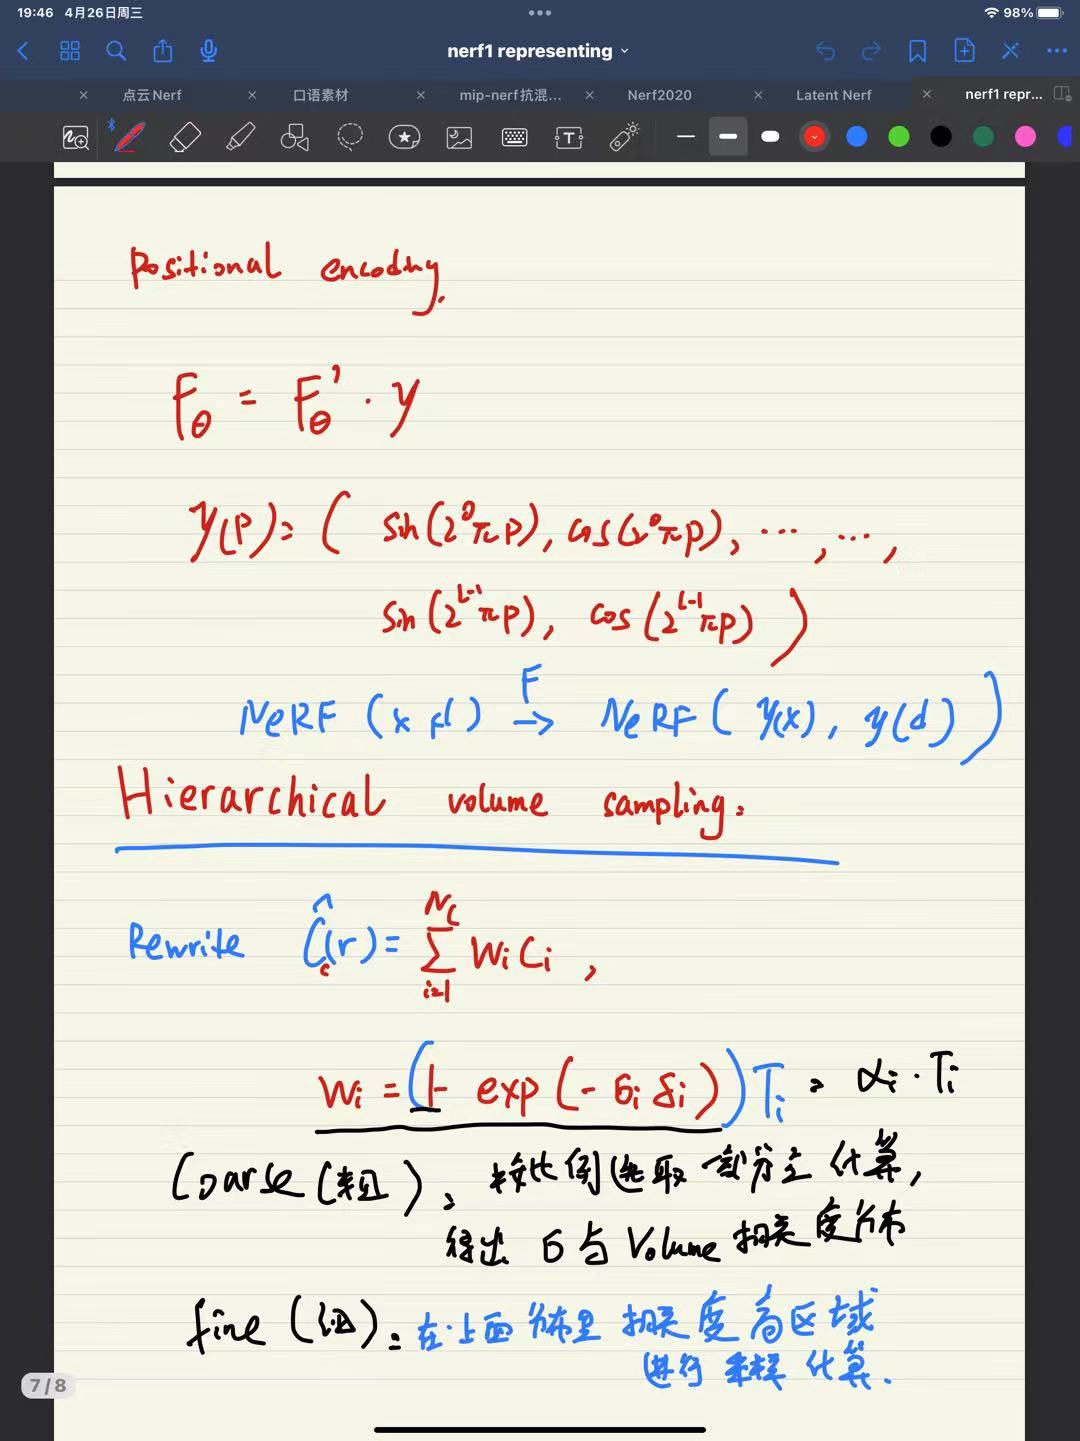 19:46 4月26日周三
98%
nerf1 representing
点云Nerf
口语素材
mip-nerf抗混...
Nerf2020
Latent Nerf
nerf1 repr...
Positional encoding.
Fθ = Fθ' · γ
γ(p) = ( sin(2⁰πp), cos(2⁰πp), ..., ...,
sin(2^{L-1}πp), cos(2^{L-1}πp) )
NeRF (x, d) →F NeRF ( γ(x), γ(d) )
Hierarchical volume sampling.
Rewrite Ĉc(r) = Σ_{i=1}^{Nc} wi ci ,
wi = (1- exp(-σi δi)) Ti = αi · Ti
Coarse (粗): 按比例选取部分点计算,
得出 σ与Volume相关度分布
fine (细): 在上面分布里相关度高区域
进行采样计算.
7/8